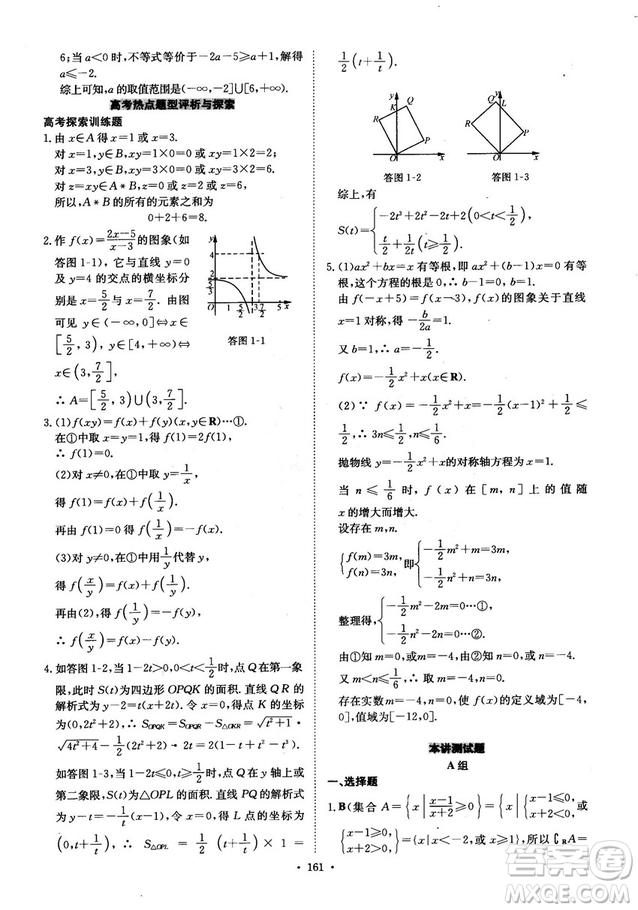 6;当a<0时,不等式等价于-2a-5≥a+1,解得
a≤-2.
综上可知,a的取值范围是(-∞,-2]∪[6,+∞).
高考热点题型评析与探索
高考探索训练题
1.由x∈A得x=1或x=3.
对x=1,y∈B,xy=1×0=0或xy=1×2=2.
对x=3,y∈B,xy=3×0=0或xy=3×2=6.
对z=xy∈A*B,所以z=0或z=2或z=6.
所以,A*B的所有的元素之和为
0+2+6=8.
2.作f(x)=(2x-5)/(x-3)的图象(如
答图1-1),它与直线y=0
及y=4的交点的横坐标分
别是x=5/2与x=7/2.由图
可见y∈(-∞,0]∪[4,+∞)⇔x∈
[5/2,3)或
x∈(3,7/2].
∴A=[5/2,3)∪(3,7/2].
答图1-1
3.(1)f(xy)=f(x)+f(y)(x∈R)…①.
在①中令x=y=1得f(1)=2f(1).
∴f(1)=0.
(2)对x≠0,在①中取y=1/x.
得f(1)=f(x)+f(1/x).
再由f(1)=0得f(1/x)=-f(x).
(3)对y≠0在①中用1/y代替y.
得f(x/y)=f(x)+f(1/y).
再由(2),得f(1/y)=-f(y).
∴f(x/y)=f(x)-f(y).
4.如答图1-2,当1-2t>0,0<t<1/2时,点Q在第一象
限,此时S(t)为四边形OPQK的面积.直线QR的
解析式为y-2=t(x+2t).令x=0,得点K的坐标为
(0,2t²+2).∴S_OPQK=S_OPQR-S_△OKR=√(t²+1)·
√(4t²+4)-1/2(2t²+2)·2t=2(1-t+t²-t³).
如答图1-3,当-2t+1≤0,t≥1/2时,点Q在y轴上或
第二象限,S(t)为△OPL的面积.直线PQ的解析式
为y-t=-1/t(x-1),令x=0得点L的坐标为
(0,t+1/t).∴S_△OPL=1/2(t+1/t)·1=
1/2(t+1/t).
答图1-2 答图1-3
综上,有
S(t)={-2t³+2t²-2t+2(0<t<1/2)
t/2+1/(2t)(t≥1/2)
5.(1)ax²+(b-1)x=0有等根,即ax²+(b-1)x=0有等
根,这个方程的根是0,∴b-1=0,b=1.
由f(-x+5)=f(x-3),f(x)的图象关于直线
x=1对称,得-b/2a=1.
又b=1,∴a=-1/2.
f(x)=-1/2x²+x(x∈R).
(2)∵f(x)=-1/2x²+x=-1/2(x-1)²+1/2≤
1/2,∴3n≤1/2,n≤1/6.
抛物线y=-1/2x²+x的对称轴方程为x=1.
当n≤1/6时,f(x)在[m,n]上的值随
x的增大而增大.
设存在m,n.
{f(m)=3m,
f(n)=3n,即{-1/2m²+m=3m,
-1/2n²+n=3n,
整理得:{-1/2m²-2m=0…①
-1/2n²-2n=0…②.
由①知m=0或m=-4,由②知n=0或n=-4.
又m<n≤1/6.∴取m=-4,n=0.
存在实数m=-4,n=0,使f(x)的定义域为[-4,
0],值域为[-12,0].
本讲测试题
A组
一、选择题
1.B(集合A={x|(x-1)/(x+2)≥0}={x|{x-1≥0
x+2>0或
{x-1≤0
x+2<0}={x|x<-2或x≥1},所以∁RA=
·161·